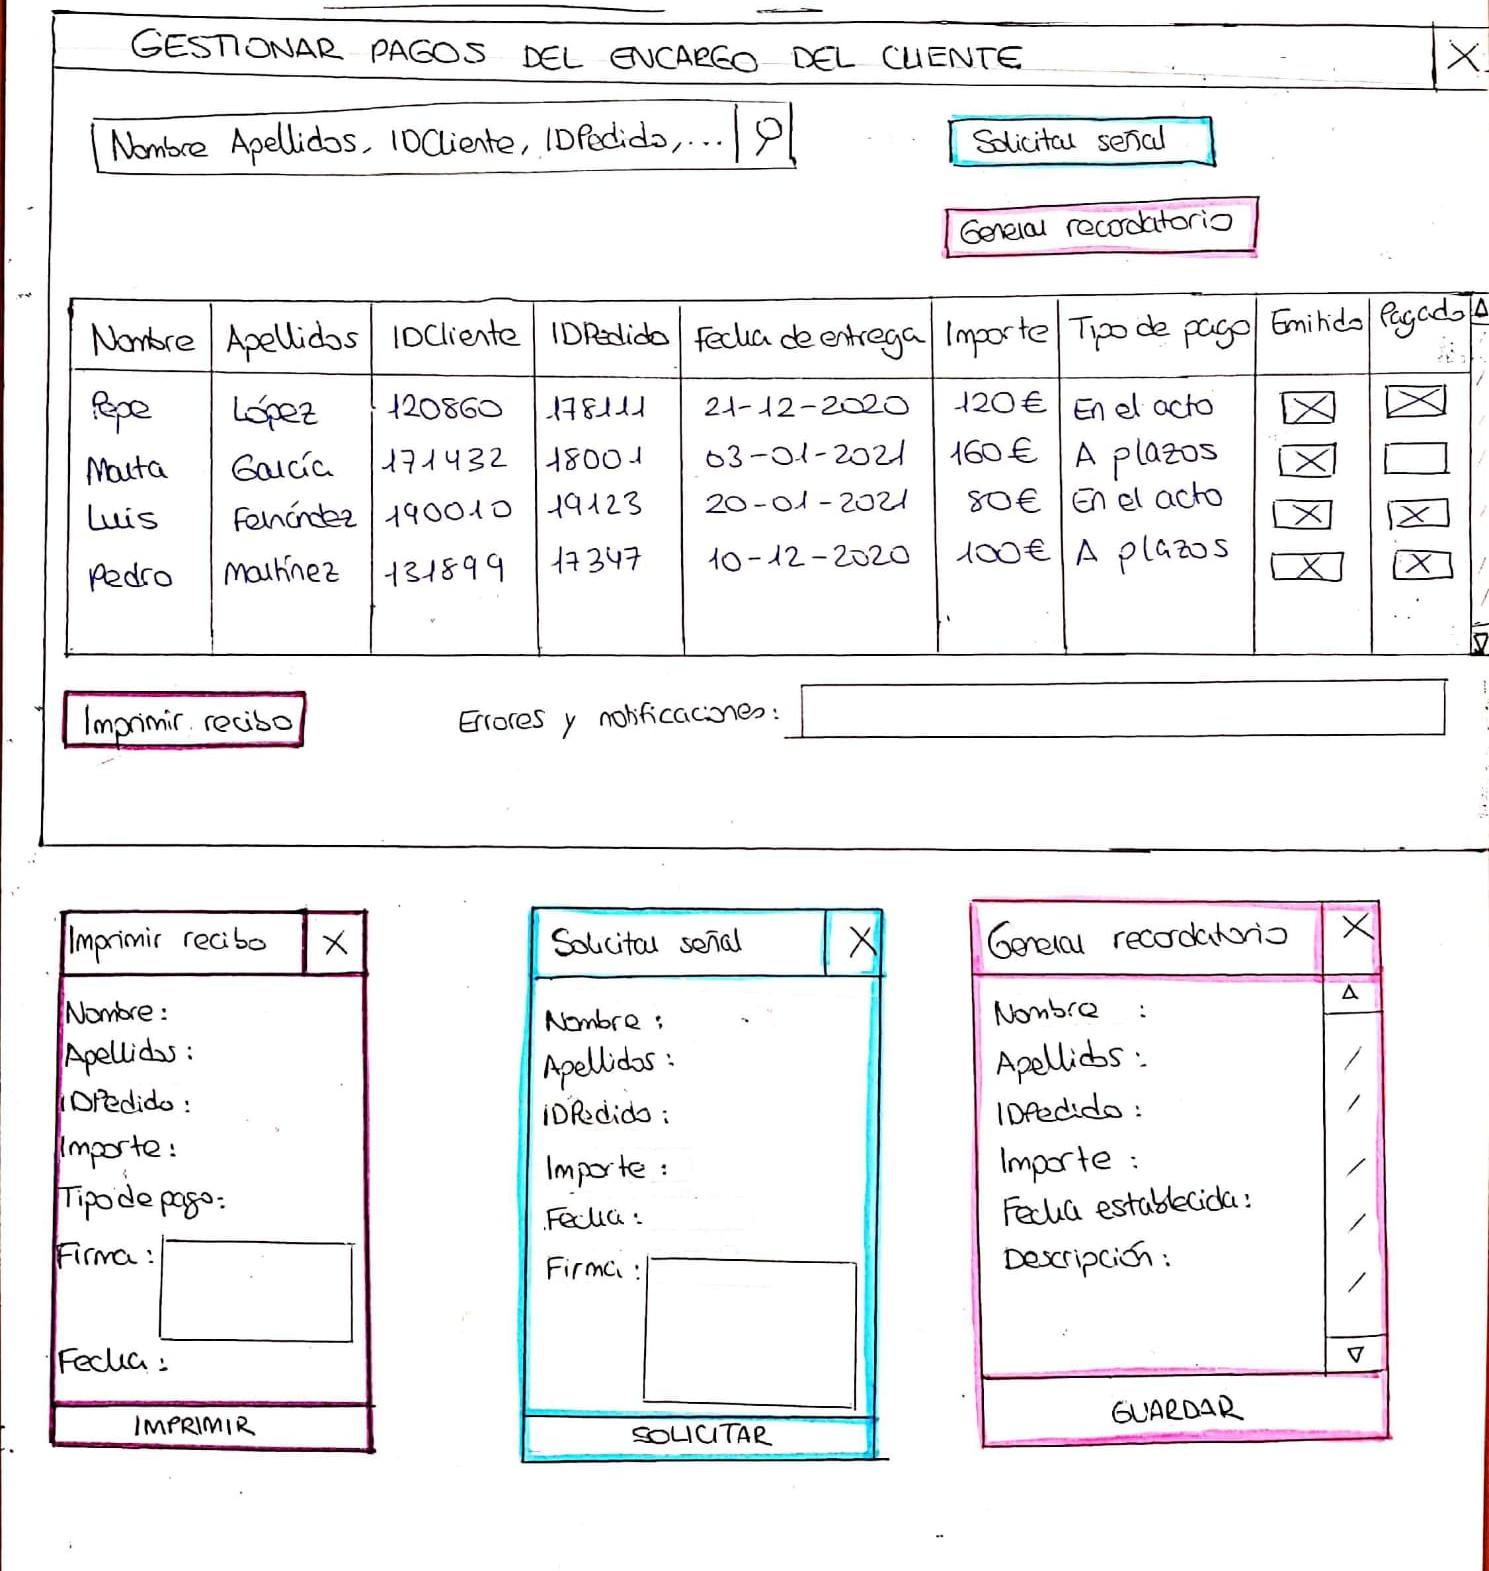 GESTIONAR PAGOS DEL ENCARGO DEL CLIENTE X
Nombre Apellidos, IDCliente, IDPedido,...
Solicitar señal
Generar recordatorio
Nombre Apellidos IDCliente IDPedido Fecha de entrega Importe Tipo de pago Emitido Pagado
Pepe López 120860 178111 21-12-2020 120€ En el acto X X
Marta García 171432 18001 03-01-2021 160€ A plazos X
Luis Fernández 190010 19123 20-01-2021 80€ En el acto X X
Pedro Martínez 131899 17347 10-12-2020 100€ A plazos X X
Imprimir recibo Errores y notificaciones:
Imprimir recibo X
Nombre:
Apellidos:
IDPedido:
Importe:
Tipo de pago:
Firma:
Fecha:
IMPRIMIR
Solicitar señal X
Nombre:
Apellidos:
IDPedido:
Importe:
Fecha:
Firma:
SOLICITAR
Generar recordatorio X
Nombre :
Apellidos:
IDPedido:
Importe :
Fecha establecida:
Descripción:
GUARDAR